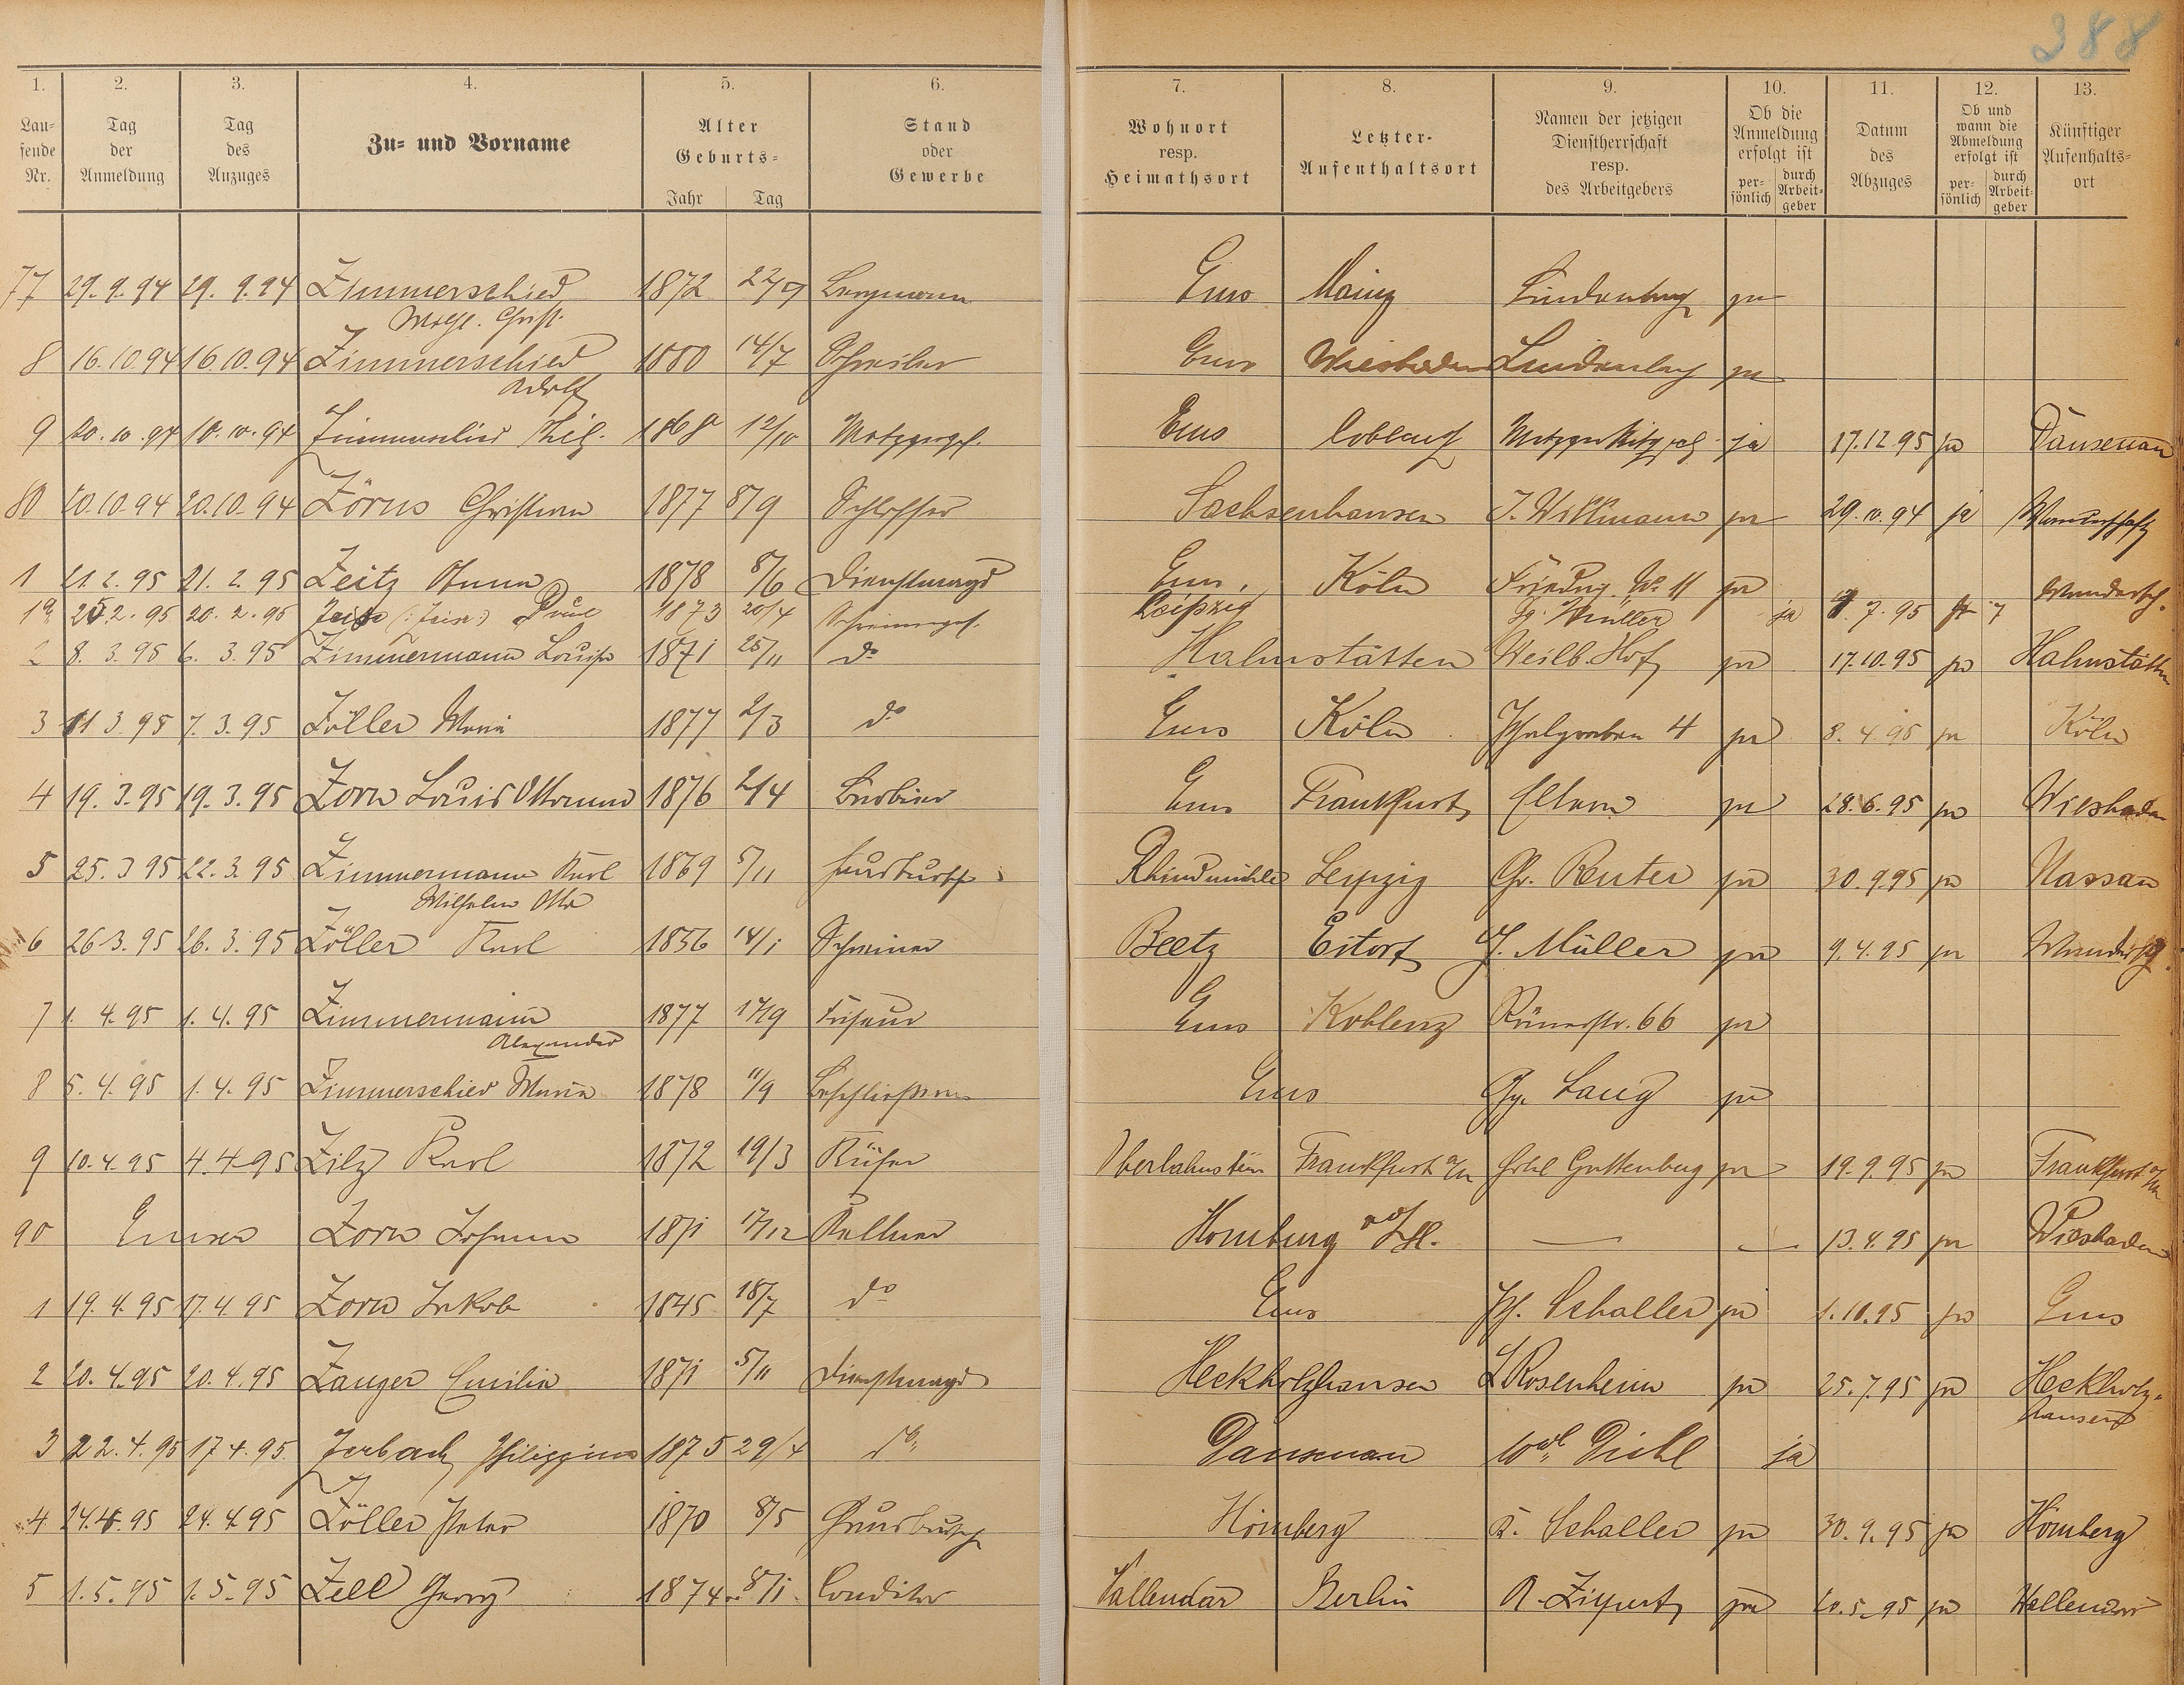 388
1. 2. 3. 4. 5. 6. 7. 8. 9. 10. 11. 12. 13.
Lau-
fende
Nr.
Tag
der
Anmeldung
Tag
des
Anzuges
Zu- und Vorname
Alter
Geburts-
Jahr Tag
Stand
oder
Gewerbe
Wohnort
resp.
Heimathsort
Letzter-
Aufenthaltsort
Namen der jetzigen
Dienstherrschaft
resp.
des Arbeitgebers
Ob die
Anmeldung
erfolgt ist
per-
sönlich
durch
Arbeit-
geber
Datum
des
Abzuges
Ob und
wann die
Abmeldung
erfolgt ist
per-
sönlich
durch
Arbeit-
geber
Künftiger
Aufenhalts-
ort
77 29.9.94 29.9.94 Zimmerschied 1872 Bergmann Ems Mainz Lindenbach ja
8 16.10.94 16.10.94 Zimmerschied 1880 14/7 Schreiber Ems Wiesbaden Lindenbach ja
Adolf
9 20.10.94 10.10.94 Zimmerschied Phil. 1868 12/10 Metzgergs. Ems Coblenz Metzger ja 17.12.95 ja Dausenau
80 20.10.94 20.10.94 Zörns Christian 1877 8/9 Schlosser Sachsenhausen J. Willmann ja 29.10.94 ja Wanderschaft
1 21.2.95 21.2.95 Zeitz Anna 1878 8/6 Dienstmagd Ems Köln Friedrig. W. 11 ja
1a 25.2.95 20.2.95 Paul 1873 20/4 Schreinerges. Leipzig Gg. Müller ja 7.95 Wandersch.
2 8.3.95 6.3.95 Zimmermann Louise 1871 25/11 do Hahnstätten Weilb. Hof ja 17.10.95 ja Hahnstätten
3 11.3.95 7.3.95 Zöller Maria 1877 2/3 do Ems Köln Pfahlgraben 4 ja 8.4.95 ja Köln
4 19.3.95 19.3.95 Zorn Louis Ottomund 1876 2/4 Barbier Ems Frankfurt Eltern ja 28.6.95 ja Wiesbaden
5 25.3.95 22.3.95 Zimmermann Karl 1869 5/11 Hausbursch Rhindmühle Leipzig Chr. Reuter ja 30.9.95 ja Nassau
Wilhelm Otto
6 26.3.95 26.3.95 Zöller Karl 1856 14/1 Schreiner Beetz Eitorf J. Müller ja 9.4.95 ja Wandersch.
7 1.4.95 1.4.95 Zimmermann 1877 17/9 Friseur Ems Koblenz Römerstr. 66 ja
Alexander
8 5.4.95 1.4.95 Zimmerschied Maria 1878 11/9 Beschließerin Ems Gg. Laug ja
9 10.4.95 4.4.95 Zilz Karl 1872 19/3 Küfer Oberlahnstein Frankfurt a/M Hotel Guttenberg ja 19.9.95 ja Frankfurt a/M
90 Emser Zorn Johann 1871 17/12 Kellner Homburg v d H. 13.4.95 ja Wiesbaden
1 19.4.95 17.4.95 Zorn Jakob 1845 18/7 do Ems Ph. Schaller ja 1.10.95 ja Ems
2 20.4.95 20.4.95 Zanger Emilie 1871 5/11 Dienstmagd Heckholzhausen L Rosenheim ja 25.7.95 ja Heckholz-
hausen
3 22.4.95 17.4.95 Zerbach Philippine 1875 29/4 do Dausenau Wwe Diehl ja
4 24.4.95 24.4.95 Zöller Peter 1870 8/5 Hausbursch Hömberg K. Schaller ja 30.9.95 ja Hömberg
5 1.5.95 1.5.95 Zell Georg 1874 8/1 Conditor Vallendar Berlin ja 20.5.95 ja Vallendar